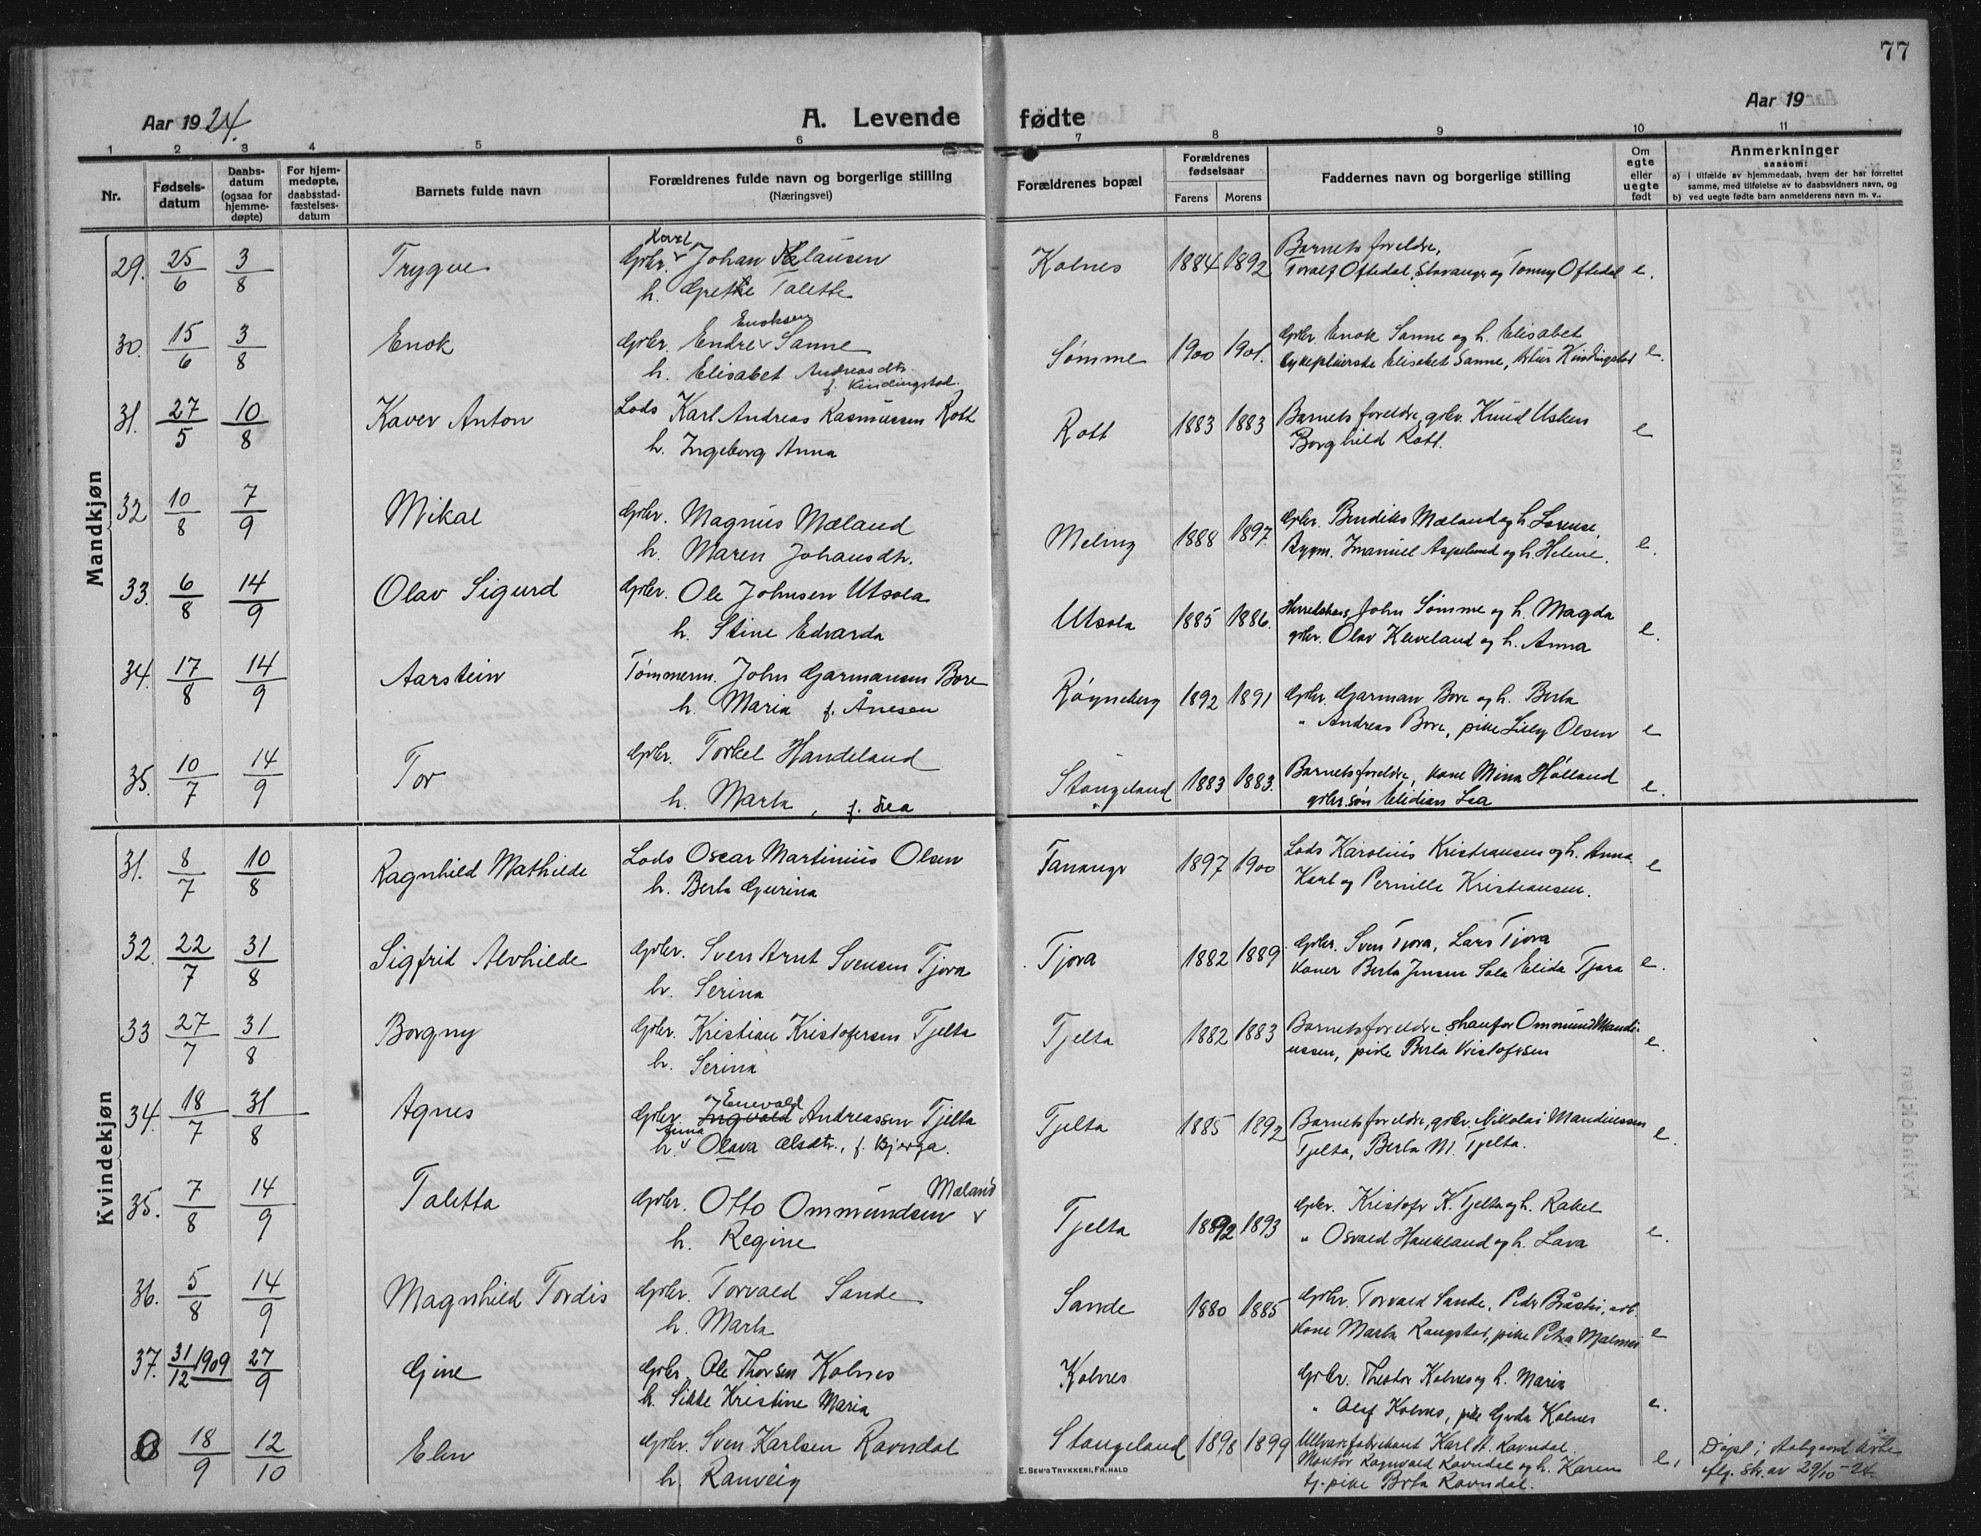 77
Aar 1924.
A. Levende fødte
Aar 19
1 2 3 4 5 6 7 8 9 10 11
Nr.
Fødsels-
datum
Daabs-
datum
(ogsaa for
hjemme-
døpte)
For hjem-
medøpte,
daabsstad-
fæstelses-
datum
Barnets fulde navn
Forældrenes fulde navn og borgerlige stilling
(Næringsvei)
Forældrenes bopæl
Forældrenes
fødselsaar
Farens Morens
Faddernes navn og borgerlig stilling
Om
egte
eller
uegte
født
Anmerkninger
saasom:
a) i tilfælde av hjemmedaab, hvem der har forrettet
samme, med tilføielse av to daabsvidners navn, og
b) ved uegte fødte barn anmelderens navn m. v.,
Mandkjøn
29. 25/6 3/8 Trygve
Karl
Gbr. Johan Klausen
h. Grethe Talette
Kolnes 1884 1892
Barnets foreldre,
Toralf Oftedal, Stavanger og Tonny Oftedal e.
30. 15/6 3/8 Enok
Enoksen
Gbr. Endre Sanne
h. Elisabet Andreasdtr.
f. Kindingstad.
Sømme 1900 1901.
Gbr. Enok Sanne og h. Elisabet
sykepleierske Elisabet Sanne, Artur Kindingstad e.
31. 27/5 10/8 Kaver Anton
Lods Karl Andreas Rasmussen Rott
h. Ingeborg Anna
Rott 1883 1883
Barnets foreldre, gbr. Knud Usken
Borghild Rott. e
32 10/8 7/9 Mikal
Gbr. Magnus Mæland
h. Maren Johansdtr.
Meling 1888 1897
Gbr. Bendiks Mæland og h. Lorense,
Bygm. Imanuel Aspelund og h. Helene. e.
33. 6/8 14/9 Olav Sigurd
Gbr. Ole Johnsen Utsola
h. Stine Edvarda
Utsola 1885 1886.
John Sømme og h. Magda
gbr. Olav Kleveland og h. Anna e.
34. 17/8 14/9 Aarstein
Tømmerm. John Garmansen Bore
h. Maria f. Ånesen
Røyneberg 1892 1891
Gbr. Garman Bore og h. Berta
" Andreas Bore, pike Lilly Olsen e
35. 10/7 14/9 Tor
Gbr. Torkel Handeland
h. Marta, f. Lea
Stangeland 1883 1883.
Barnets foreldre, kone Mina Hølland
gbr.søn Elidian Lea e.
Kvindekjøn
31. 8/7 10/8 Ragnhild Mathilde
Lods Oscar Martinius Olsen
h. Berta Gurina
Tananger 1897 1900
Lods Karolius Kristiansen og h. Anna
Karl og Pernille Kristiansen. e
32. 22/7 31/8 Sigfrid Alvhilde
Gbr. Sven Arnt Svensen Tjora
h. Serina
Tjora 1882 1889
Gbr. Sven Tjora, Lars Tjora
koner Berta Jensen Sola Elida Tjora e.
33 27/7 31/8 Borgny
Gbr. Kristian Kristofersen Tjelta
h. Serina
Tjelta 1882 1883
Barnets foreldre, Ommund Mandi-
ussen, pike Berta Kristofersen e.
34. 18/7 31/8 Agnes
Enevald
Gbr. Ingvald Andreassen Tjelta
Anna
h. Olava Olsdtr., f. Bjørga.
Tjelta 1885 1892
Barnets foreldre, gbr. Nikolai Mandiussen
Tjelta, Berta M. Tjelta. e.
35. 7/8 14/9 Taletta
Mæland
Gbr. Otto Ommundsen
h. Regine
Tjelta 1892 1893
Gbr. Kristofer K. Tjelta og h. Rakel
" Osvald Haukland og h. Lava e.
36. 5/8 14/9 Magnhild Tordis
Gbr. Torvald Sande
h. Marta
Sande 1880 1885
Gbr. Torvald Sande, Peder
kone Marta Rangstad, pike Petra Malmei e
37. 31/12 1909 27/9 Gine
Gbr. Ole Thorsen Kolnes
h. Sikke Kristine Maria
Kolnes
Gbr. Theodor Kolnes og h. Maria
" Olaf Kolnes, pike Gerda Kolnes e.
38 18/9 12/10 Elin
Gbr. Sven Karlsen Ravndal
h. Ranveig
Stangeland 1898 1899
Ullvarefabrikant Karl A. Ravndal.
Montør Ragnvald Ravndal og h. Karen
tj.pike Berta Ravndal. e.
Døpt i Aalgaard kirke
iflg. skr. av 29/10-24.
E. SEM'S TRYKKERI, FR.HALD